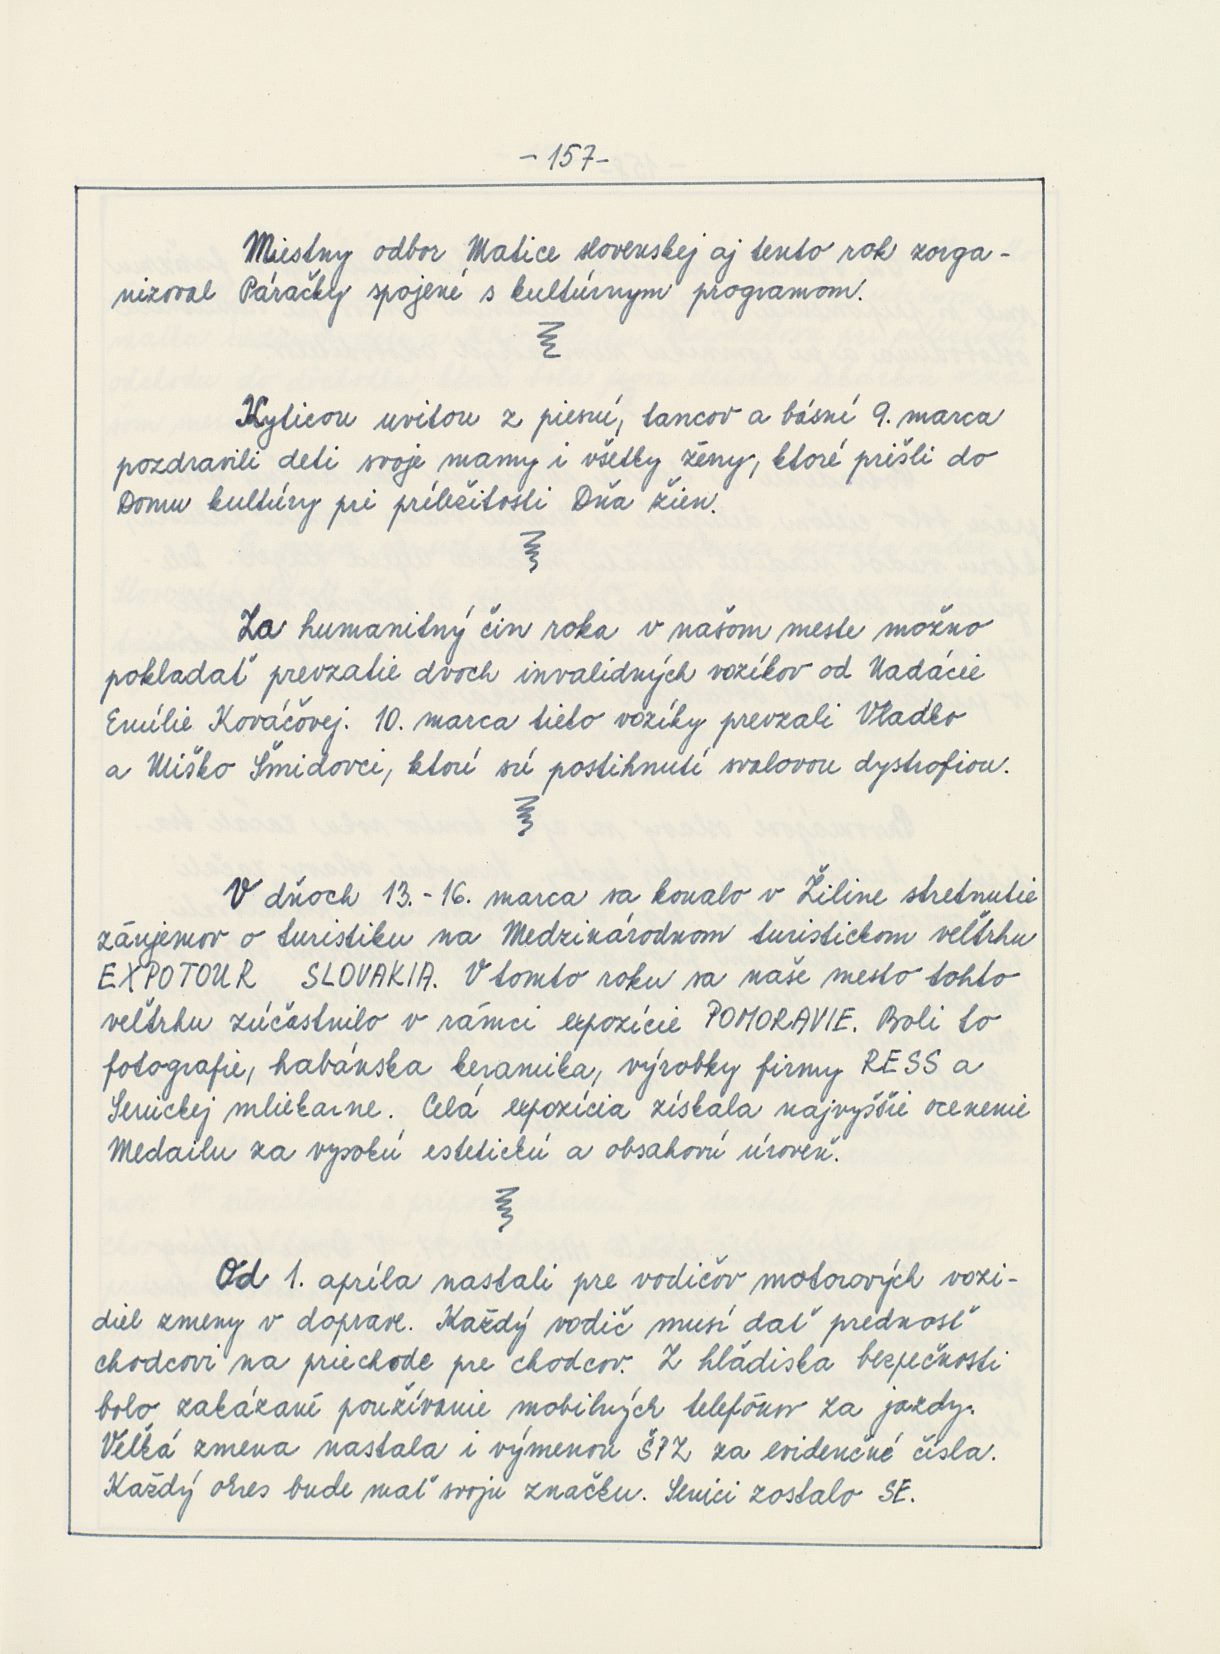 - 157 -
Miestny odbor Matice slovenskej aj tento rok zorga-
nizoval Páračky spojené s kultúrnym programom.
Kyticou uvitou z piesní, tancov a básní 9. marca
pozdravili deti svoje mamy i všetky ženy, ktoré prišli do
Domu kultúry pri príležitosti Dňa žien.
Za humanitný čin roka v našom meste možno
pokladať prevzatie dvoch invalidných vozíkov od Nadácie
Emílie Kováčovej. 10. marca tieto vozíky prevzali Vladko
a Miško Šmidovci, ktorí sú postihnutí svalovou dystrofiou.
V dňoch 13. - 16. marca sa konalo v Žiline stretnutie
záujemov o turistiku na Medzinárodnom turistickom veľtrhu
EXPOTOUR SLOVAKIA. V tomto roku sa naše mesto tohto
veľtrhu zúčastnilo v rámci expozície POMORAVIE. Boli to
fotografie, habánska keramika, výrobky firmy RESS a
Senickej mliekarne. Celá expozícia získala najvyššie ocenenie
Medailu za vysokú estetickú a obsahovú úroveň.
Od 1. apríla nastali pre vodičov motorových vozi-
diel zmeny v doprave. Každý vodič musí dať prednosť
chodcovi na priechode pre chodcov. Z hľadiska bezpečnosti
bolo zakázané používanie mobilných telefónov za jazdy.
Veľká zmena nastala i výmenou ŠPZ za evidenčné čísla.
Každý okres bude mať svoju značku. Senici zostalo SE.